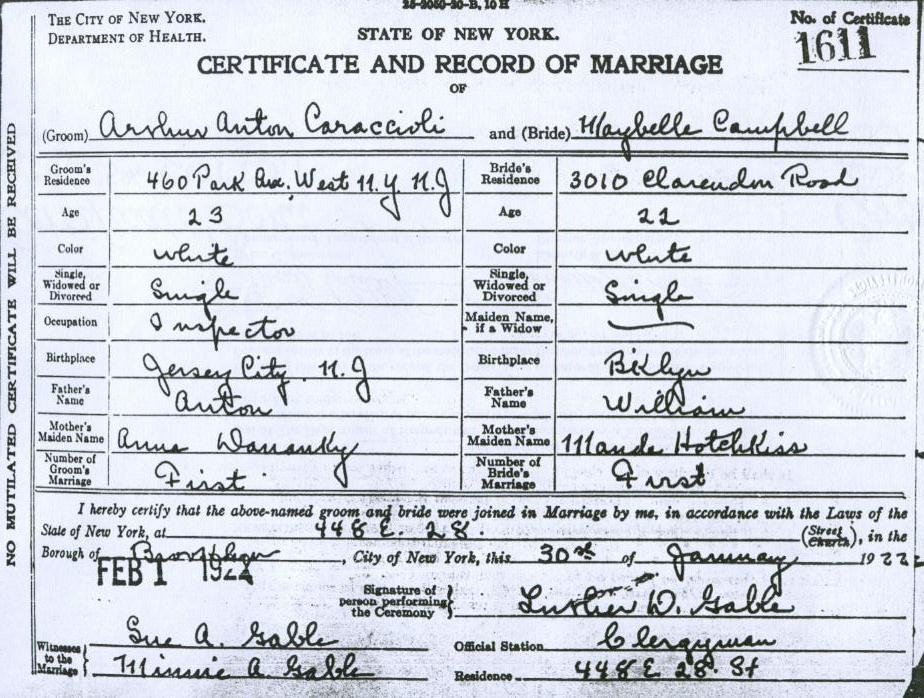 25-2050-20-B, 10 H
THE CITY OF NEW YORK.
DEPARTMENT OF HEALTH.
STATE OF NEW YORK.
No. of Certificate
1611
CERTIFICATE AND RECORD OF MARRIAGE
OF
(Groom) Arthur Anton Caraccioli and (Bride) Maybelle Campbell
Groom's Residence 460 Park Ave. West N.Y. N.J Bride's Residence 3010 Clarendon Road
Age 23 Age 22
Color white Color white
Single, Widowed or Divorced Single Single, Widowed or Divorced Single
Occupation Inspector Maiden Name, if a Widow —
Birthplace Jersey City. N.J Birthplace Bklyn
Father's Name Anton Father's Name William
Mother's Maiden Name Anna Mother's Maiden Name Maude Hotchkiss
Number of Groom's Marriage First Number of Bride's Marriage First
I hereby certify that the above-named groom and bride were joined in Marriage by me, in accordance with the Laws of the
State of New York, at 448 E. 28. (Street Church), in the
Borough of Brooklyn, City of New York, this 30th of January 1922
FEB 1 1922
Signature of person performing the Ceremony Luther D. Gable
Witnesses to the Marriage Sue A. Gable
Minnie A Gable
Official Station Clergyman
Residence 448 E 28. St
NO MUTILATED CERTIFICATE WILL BE RECEIVED